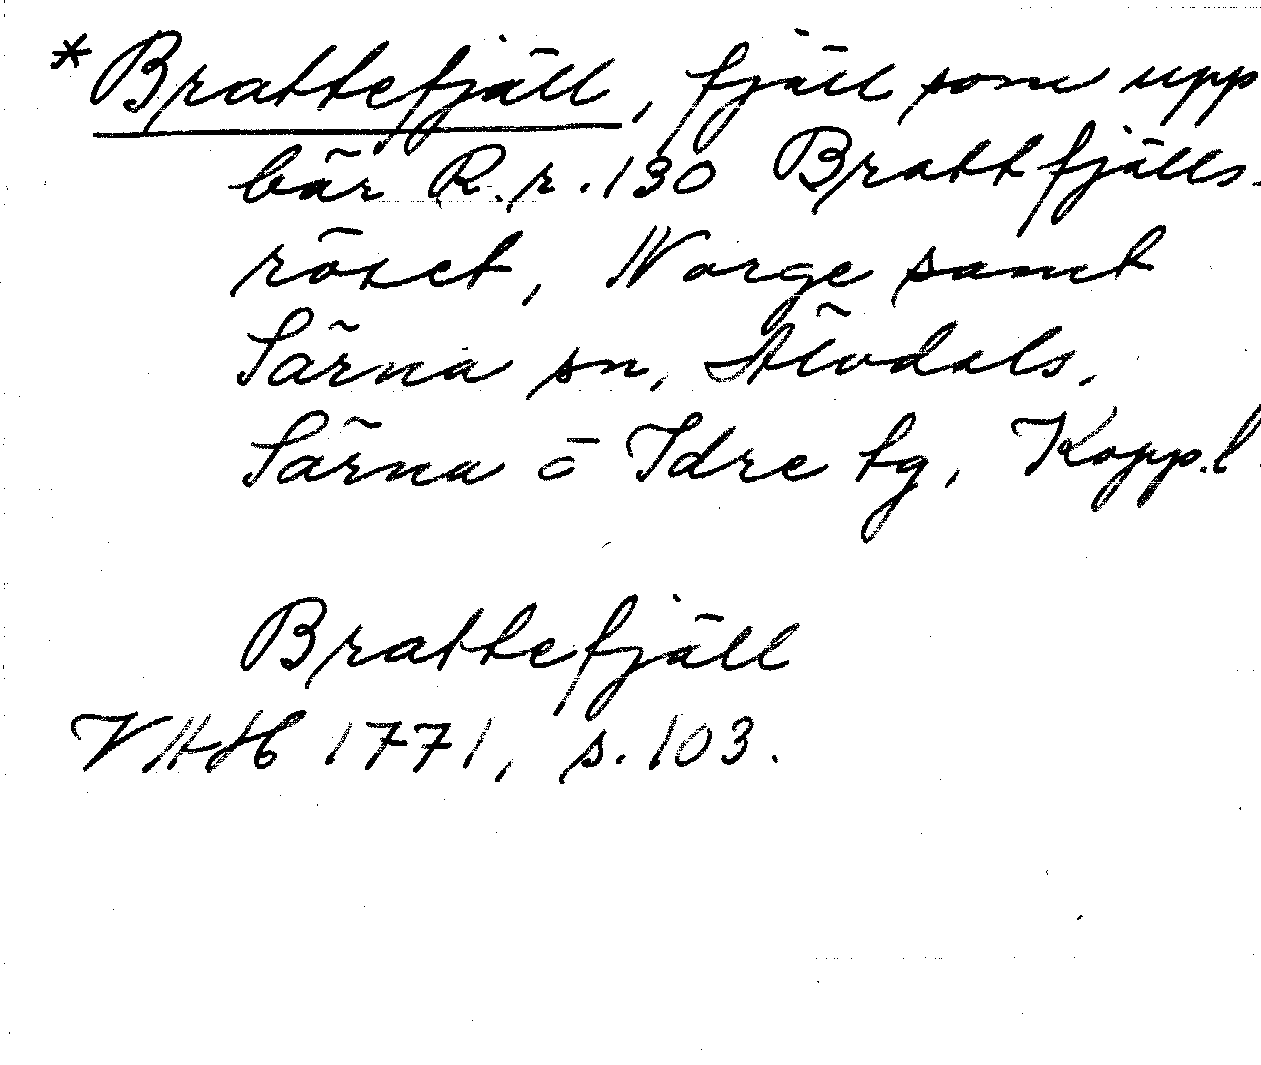 * Brattefjäll, fjäll som upp
bär R.r. 130 Brattfjälls-
röset, Norge samt
Särna sn, Älvdals,
Särna o Idre tg, Kopp.l
Brattefjäll
VHAH 1771, s. 103.